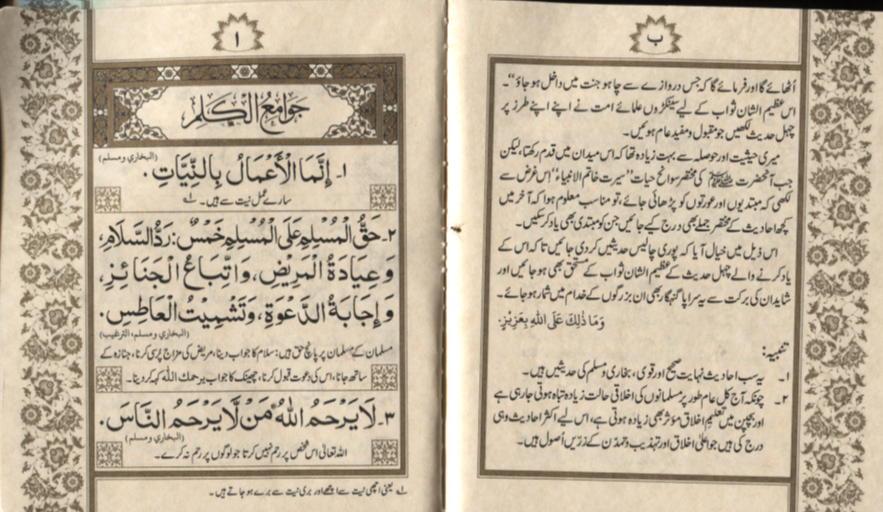 ب
اُٹھائے گا اور فرمائے گا کہ جس دروازے سے چاہو جنت میں داخل ہو جاؤ‘‘۔
اس عظیم الشان ثواب کے لیے سینکڑوں علمائے امت نے اپنے اپنے طرز پر
چہل حدیث لکھیں جو مقبول و مفید عام ہوئیں۔
میری حیثیت اور حوصلہ سے بہت زیادہ تھا کہ اس میدان میں قدم رکھتا، لیکن
جب آنحضرت ﷺ کی مختصر سوانح حیات ’’سیرت خاتم الانبیاء‘‘ اس غرض سے
لکھی کہ مبتدیوں اور عورتوں کو پڑھائی جائے، تو مناسب معلوم ہوا کہ آخر میں
کچھ احادیث کے مختصر جملے بھی درج کیے جائیں جن کو مبتدی بھی یاد کرسکیں۔
اس ذیل میں خیال آیا کہ پوری چالیس حدیثیں کردی جائیں تاکہ اس کے
یاد کرنے والے چہل حدیث کے عظیم الشان ثواب کے مستحق بھی ہوجائیں اور
شاید ان کی برکت سے یہ سراپا گنہگار بھی ان بزرگوں کے خدام میں شمار ہوجائے۔
وَمَا ذٰلِكَ عَلَى اللهِ بِعَزِيْزٍ.
تنبیہ:
۱۔ یہ سب احادیث نہایت صحیح اور قوی، بخاری و مسلم کی حدیثیں ہیں۔
۲۔ چونکہ آج کل عام طور پر مسلمانوں کی اخلاقی حالت زیادہ تباہ ہوتی جارہی ہے
اور بچپن میں تعلیم اخلاق مؤثر بھی زیادہ ہوتی ہے، اس لیے اکثر احادیث وہی
درج کی ہیں جو اعلیٰ اخلاق اور تہذیب و تمدن کے زرّیں اُصول ہیں۔
۱
جَوَامِعُ الْكَلِمِ
۱۔ إِنَّمَا الْأَعْمَالُ بِالنِّيَّاتِ. (البخاري ومسلم)
سارے عمل نیت سے ہیں۔ ۱ے
۲۔ حَقُّ الْمُسْلِمِ عَلَى الْمُسْلِمِ خَمْسٌ: رَدُّ السَّلَامِ،
وَعِيَادَةُ الْمَرِيْضِ، وَاتِّبَاعُ الْجَنَائِزِ،
وَإِجَابَةُ الدَّعْوَةِ، وَتَشْمِيْتُ الْعَاطِسِ.
(البخاري ومسلم، الترغيب)
مسلمان کے مسلمان پر پانچ حق ہیں: سلام کا جواب دینا، مریض کی مزاج پرسی کرنا، جنازہ کے
ساتھ جانا، اس کی دعوت قبول کرنا، چھینک کا جواب یرحمك اللہ کہہ کر دینا۔
۳۔ لَا يَرْحَمُ اللهُ مَنْ لَّا يَرْحَمُ النَّاسَ.
(البخاري ومسلم)
اللہ تعالیٰ اس شخص پر رحم نہیں کرتا جو لوگوں پر رحم نہ کرے۔
۱ے یعنی اچھی نیت سے اچھے اور بری نیت سے برے ہو جاتے ہیں۔